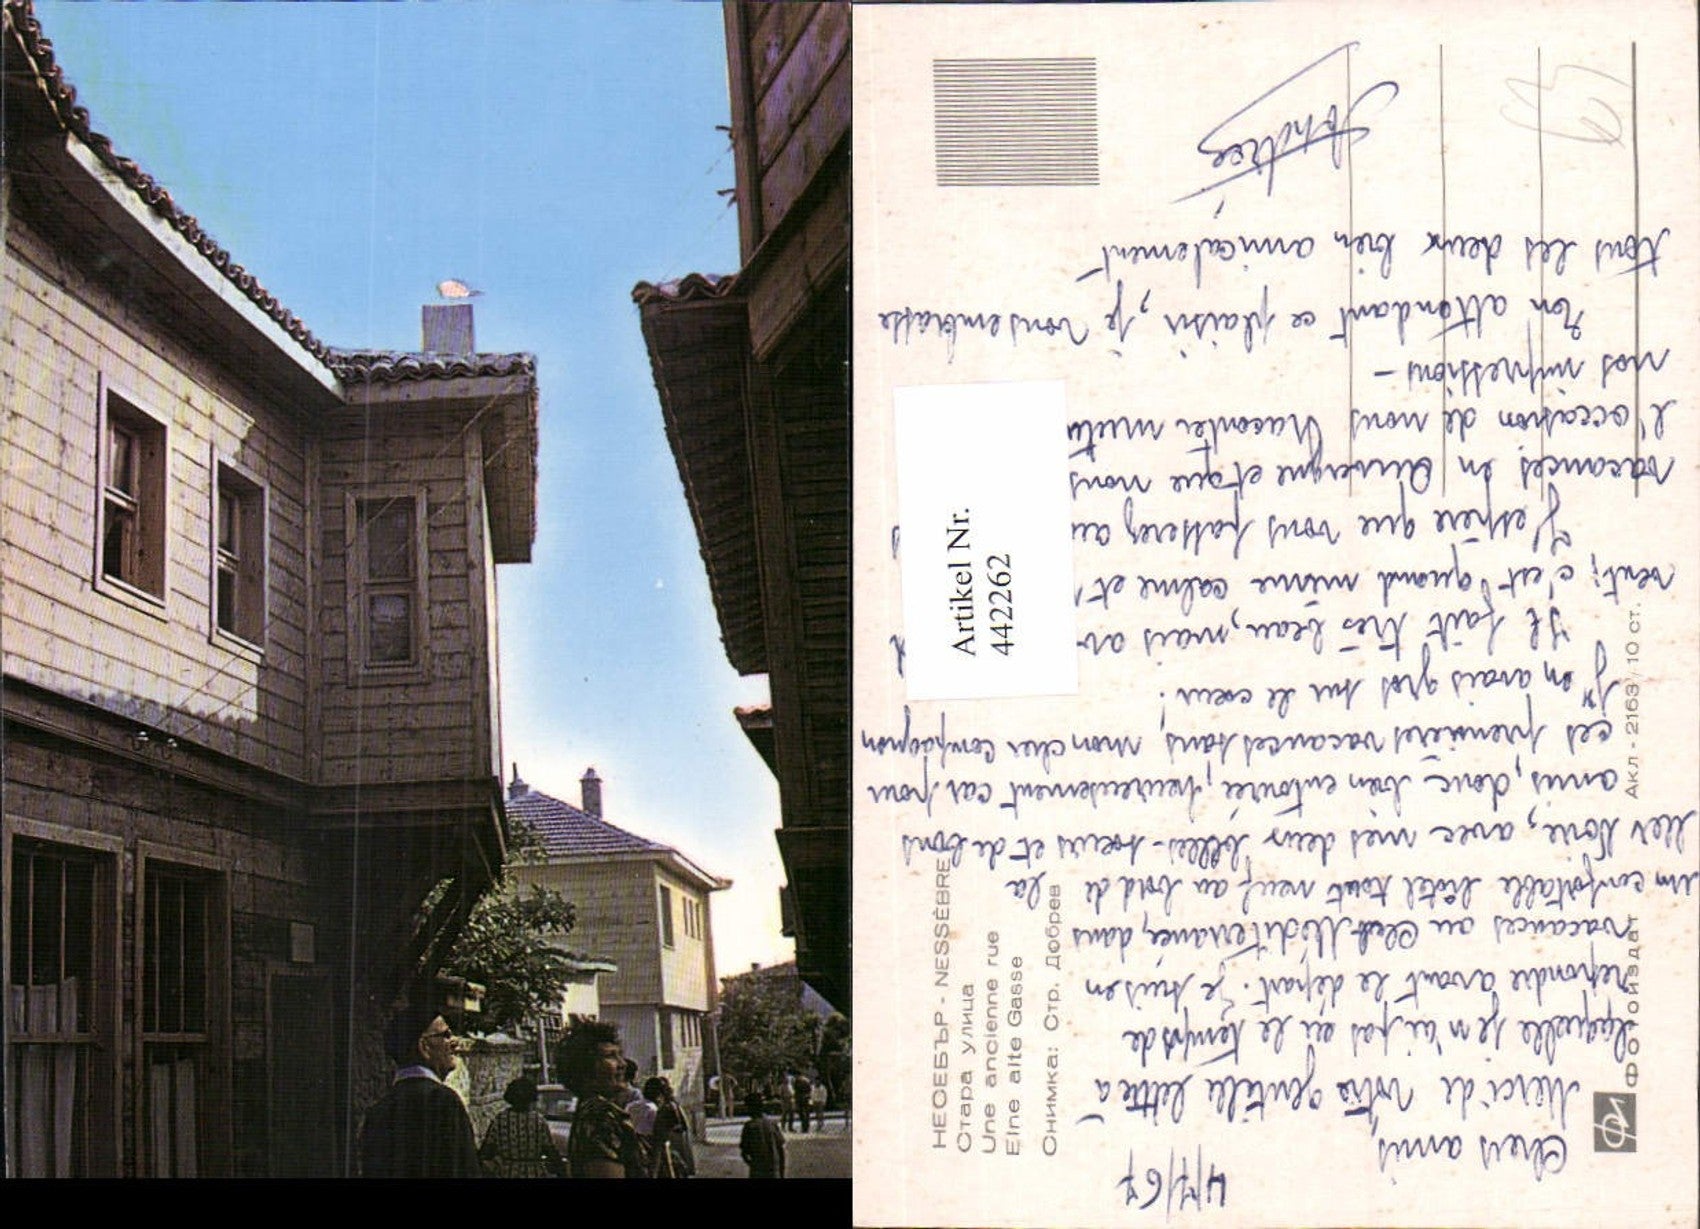 НЕСЕБЪР - NESSÈBRE
Стара улица
Une ancienne rue
Eine alte Gasse
Снимка: Стр. Добрев
ФОТОИЗДАТ
Акл - 2163 / 10 ст.
Artikel Nr.
442262
4/7/67
Chers amis,
Merci de votre gentille lettre à
laquelle je n'ai pas eu le temps de
répondre avant le départ. Je suis en
vacances au Club Méditerranée, dans
un confortable hôtel tout neuf au bord de la
Mer Noire, avec mes deux belles-soeurs et de bons
amis, donc bien entourée, heureusement car pour
ces premières vacances sans mon cher compagnon
j'en avais gros sur le coeur !
Il fait très beau, mais
vent ; c'est quand même calme et
J'espère que vous passerez
vacances en Auvergne et que nous
l'occasion de nous raconter
nos impressions -
En attendant ce plaisir, je vous embrasse
tous les deux bien amicalement
Andrée